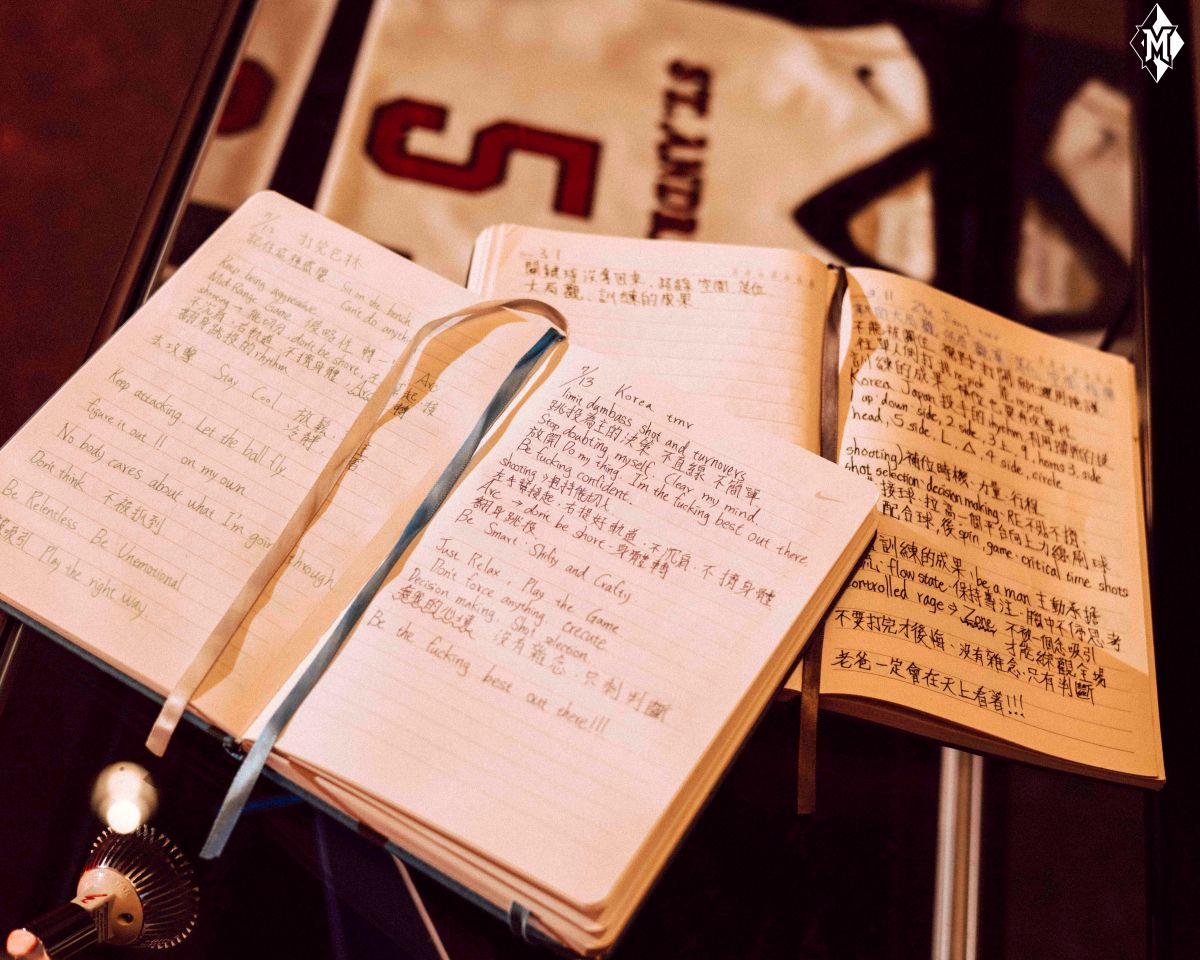 M
5
ST. ANDR
7/12 打完巴林
記住這種感覺. Sit on the bench
Can't do anyth
Keep being aggressive.
Mid Range Game
strong → dont be short,
不沉肩,右軌道,不擠身體,Arc
翻身跳投的rhythm
去攻擊
Stay Cool 放鬆
冷靜
Keep attacking Let the ball fly
figure it out !! on my own
No body cares about what I'm going through
Dont think 不被打到
Be Relentless Be Unemotional
吸引 Play the right way
7/13 Korea tmr
limit dumbass shot and turnovers
跳投為主的決策、不直線、不簡單
Stop doubting myself, Clear my mind.
放開 Do my thing, I'm the fucking best out there
Be fucking confident.
shooting→抱持能切入
左手臂撐起、右提好軌道、不沉肩、不擠身體
Arc → dont be short、身體轉
翻身跳投
Be Smart, Shifty and Crafty
Just Relax, Play the Game
Don't force anything, execute
Decision making, Shot selection.
沒有雜念、只剩判斷
Be the fucking best out there!!!
31
關鍵球沒奪回來、路線、空間、落位
大局觀、訓練的成果
訓練的成果、補位
Korea Japan 投手的rhythm,
1 up 1 down 1 side, 2 side, 3 L, 9, horns 3 side
head, 5 side, L, △, 4 side, circle
shooting)補位時機、力量、行程
shot selection、decision making、RE不貼不擠
接球、拉高一個平台向上力線、刷球
配合球、後 spin, game、critical time shots
訓練的成果、be a man 主動承擔
flow state、保持專注、腦中不停思考
controlled rage → Zone 不被一個念吸引
才能綜觀全場
不要打完才後悔、沒有雜念、只有判斷
老爸一定會在天上看著!!!